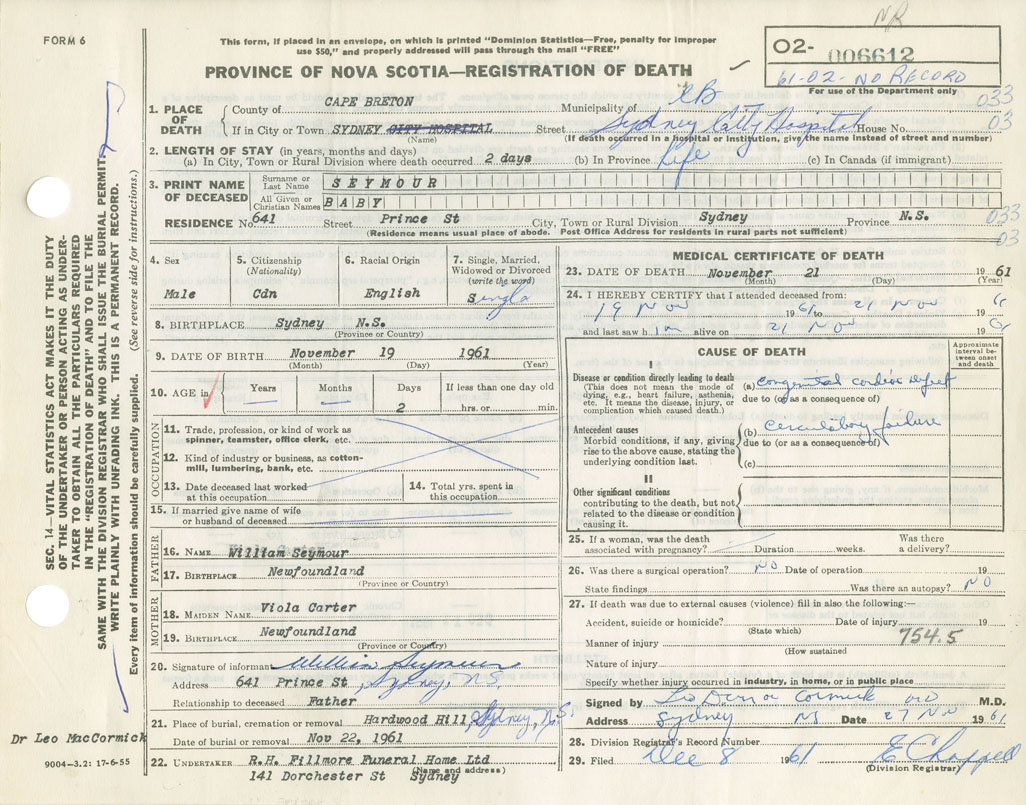 NR
FORM 6
This form, if placed in an envelope, on which is printed "Dominion Statistics—Free, penalty for improper
use $50," and properly addressed will pass through the mail "FREE"
PROVINCE OF NOVA SCOTIA—REGISTRATION OF DEATH
O2- 006612
61-02-NO RECORD
For use of the Department only
033
03
1. PLACE OF DEATH { County of CAPE BRETON Municipality of CB
If in City or Town SYDNEY CITY HOSPITAL Street Sydney City Hospital House No.
(Name) (If death occurred in a hospital or institution, give the name instead of street and number)
2. LENGTH OF STAY (in years, months and days)
(a) In City, Town or Rural Division where death occurred 2 days (b) In Province Life (c) In Canada (if immigrant)
3. PRINT NAME OF DECEASED
Surname or Last Name SEYMOUR
All Given or Christian Names BABY
RESIDENCE No. 641 Street Prince St City, Town or Rural Division Sydney Province N.S.
(Residence means usual place of abode. Post Office Address for residents in rural parts not sufficient)
033
03
4. Sex
Male
5. Citizenship
(Nationality)
Cdn
6. Racial Origin
English
7. Single, Married,
Widowed or Divorced
(write the word)
Single
8. BIRTHPLACE Sydney N.S.
(Province or Country)
9. DATE OF BIRTH November 19 1961
(Month) (Day) (Year)
10. AGE in
Years
Months
Days
2
If less than one day old
hrs. or min.
OCCUPATION
11. Trade, profession, or kind of work as
spinner, teamster, office clerk, etc.
12. Kind of industry or business, as cotton-
mill, lumbering, bank, etc.
13. Date deceased last worked
at this occupation
14. Total yrs. spent in
this occupation
15. If married give name of wife
or husband of deceased
FATHER
16. NAME William Seymour
17. BIRTHPLACE Newfoundland
(Province or Country)
MOTHER
18. MAIDEN NAME Viola Carter
19. BIRTHPLACE Newfoundland
(Province or Country)
20. Signature of informant William Seymour
Address 641 Prince St, Sydney, N.S.
Relationship to deceased Father
21. Place of burial, cremation or removal Hardwood Hill, Sydney, N.S.
Date of burial or removal Nov 22, 1961
22. UNDERTAKER R.H. Fillmore Funeral Home Ltd
(Name and address)
141 Dorchester St Sydney
MEDICAL CERTIFICATE OF DEATH
23. DATE OF DEATH November 21 1961
(Month) (Day) (Year)
24. I HEREBY CERTIFY that I attended deceased from:
19 Nov 1961 to 21 Nov 1961
and last saw him alive on 21 Nov 1961
CAUSE OF DEATH
Approximate interval be-tween onset and death
I
Disease or condition directly leading to death
(This does not mean the mode of
dying, e.g., heart failure, asthenia,
etc. It means the disease, injury, or
complication which caused death.)
(a) Congenital cardiac defect
due to (or as a consequence of)
Antecedent causes
Morbid conditions, if any, giving
rise to the above cause, stating the
underlying condition last.
(b) Circulatory failure
due to (or as a consequence of)
(c)
II
Other significant conditions
contributing to the death, but not
related to the disease or condition
causing it.
25. If a woman, was the death
associated with pregnancy? Duration weeks. Was there
a delivery?
26. Was there a surgical operation? NO Date of operation 19
State findings Was there an autopsy? NO
27. If death was due to external causes (violence) fill in also the following:—
Accident, suicide or homicide? Date of injury 19
(State which)
Manner of injury 754.5
(How sustained
Nature of injury
Specify whether injury occurred in industry, in home, or in public place
Signed by MD M.D.
Address Sydney NS Date 27 Nov 1961
28. Division Registrar's Record Number
29. Filed Dec 8 1961 E Chappell
(Division Registrar)
SEC. 14—VITAL STATISTICS ACT MAKES IT THE DUTY
OF THE UNDERTAKER OR PERSON ACTING AS UNDER-
TAKER TO OBTAIN ALL THE PARTICULARS REQUIRED
IN THE "REGISTRATION OF DEATH" AND TO FILE THE
SAME WITH THE DIVISION REGISTRAR WHO SHALL ISSUE THE BURIAL PERMIT.
WRITE PLAINLY WITH UNFADING INK. THIS IS A PERMANENT RECORD.
Every item of information should be carefully supplied. (See reverse side for instructions.)
Dr Leo MacCormick
9004-3.2: 17-6-55